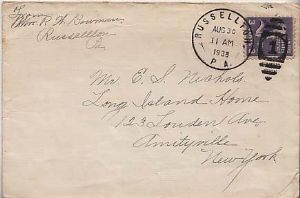 Mrs. R. W. Bowman
Russellton
Pa
RUSSELLTON
AUG 30
11 AM
1933
PA.
3
1
Mr. E. S. Nichols
Long Island Home
123 Louden Ave,
Amityville
New York